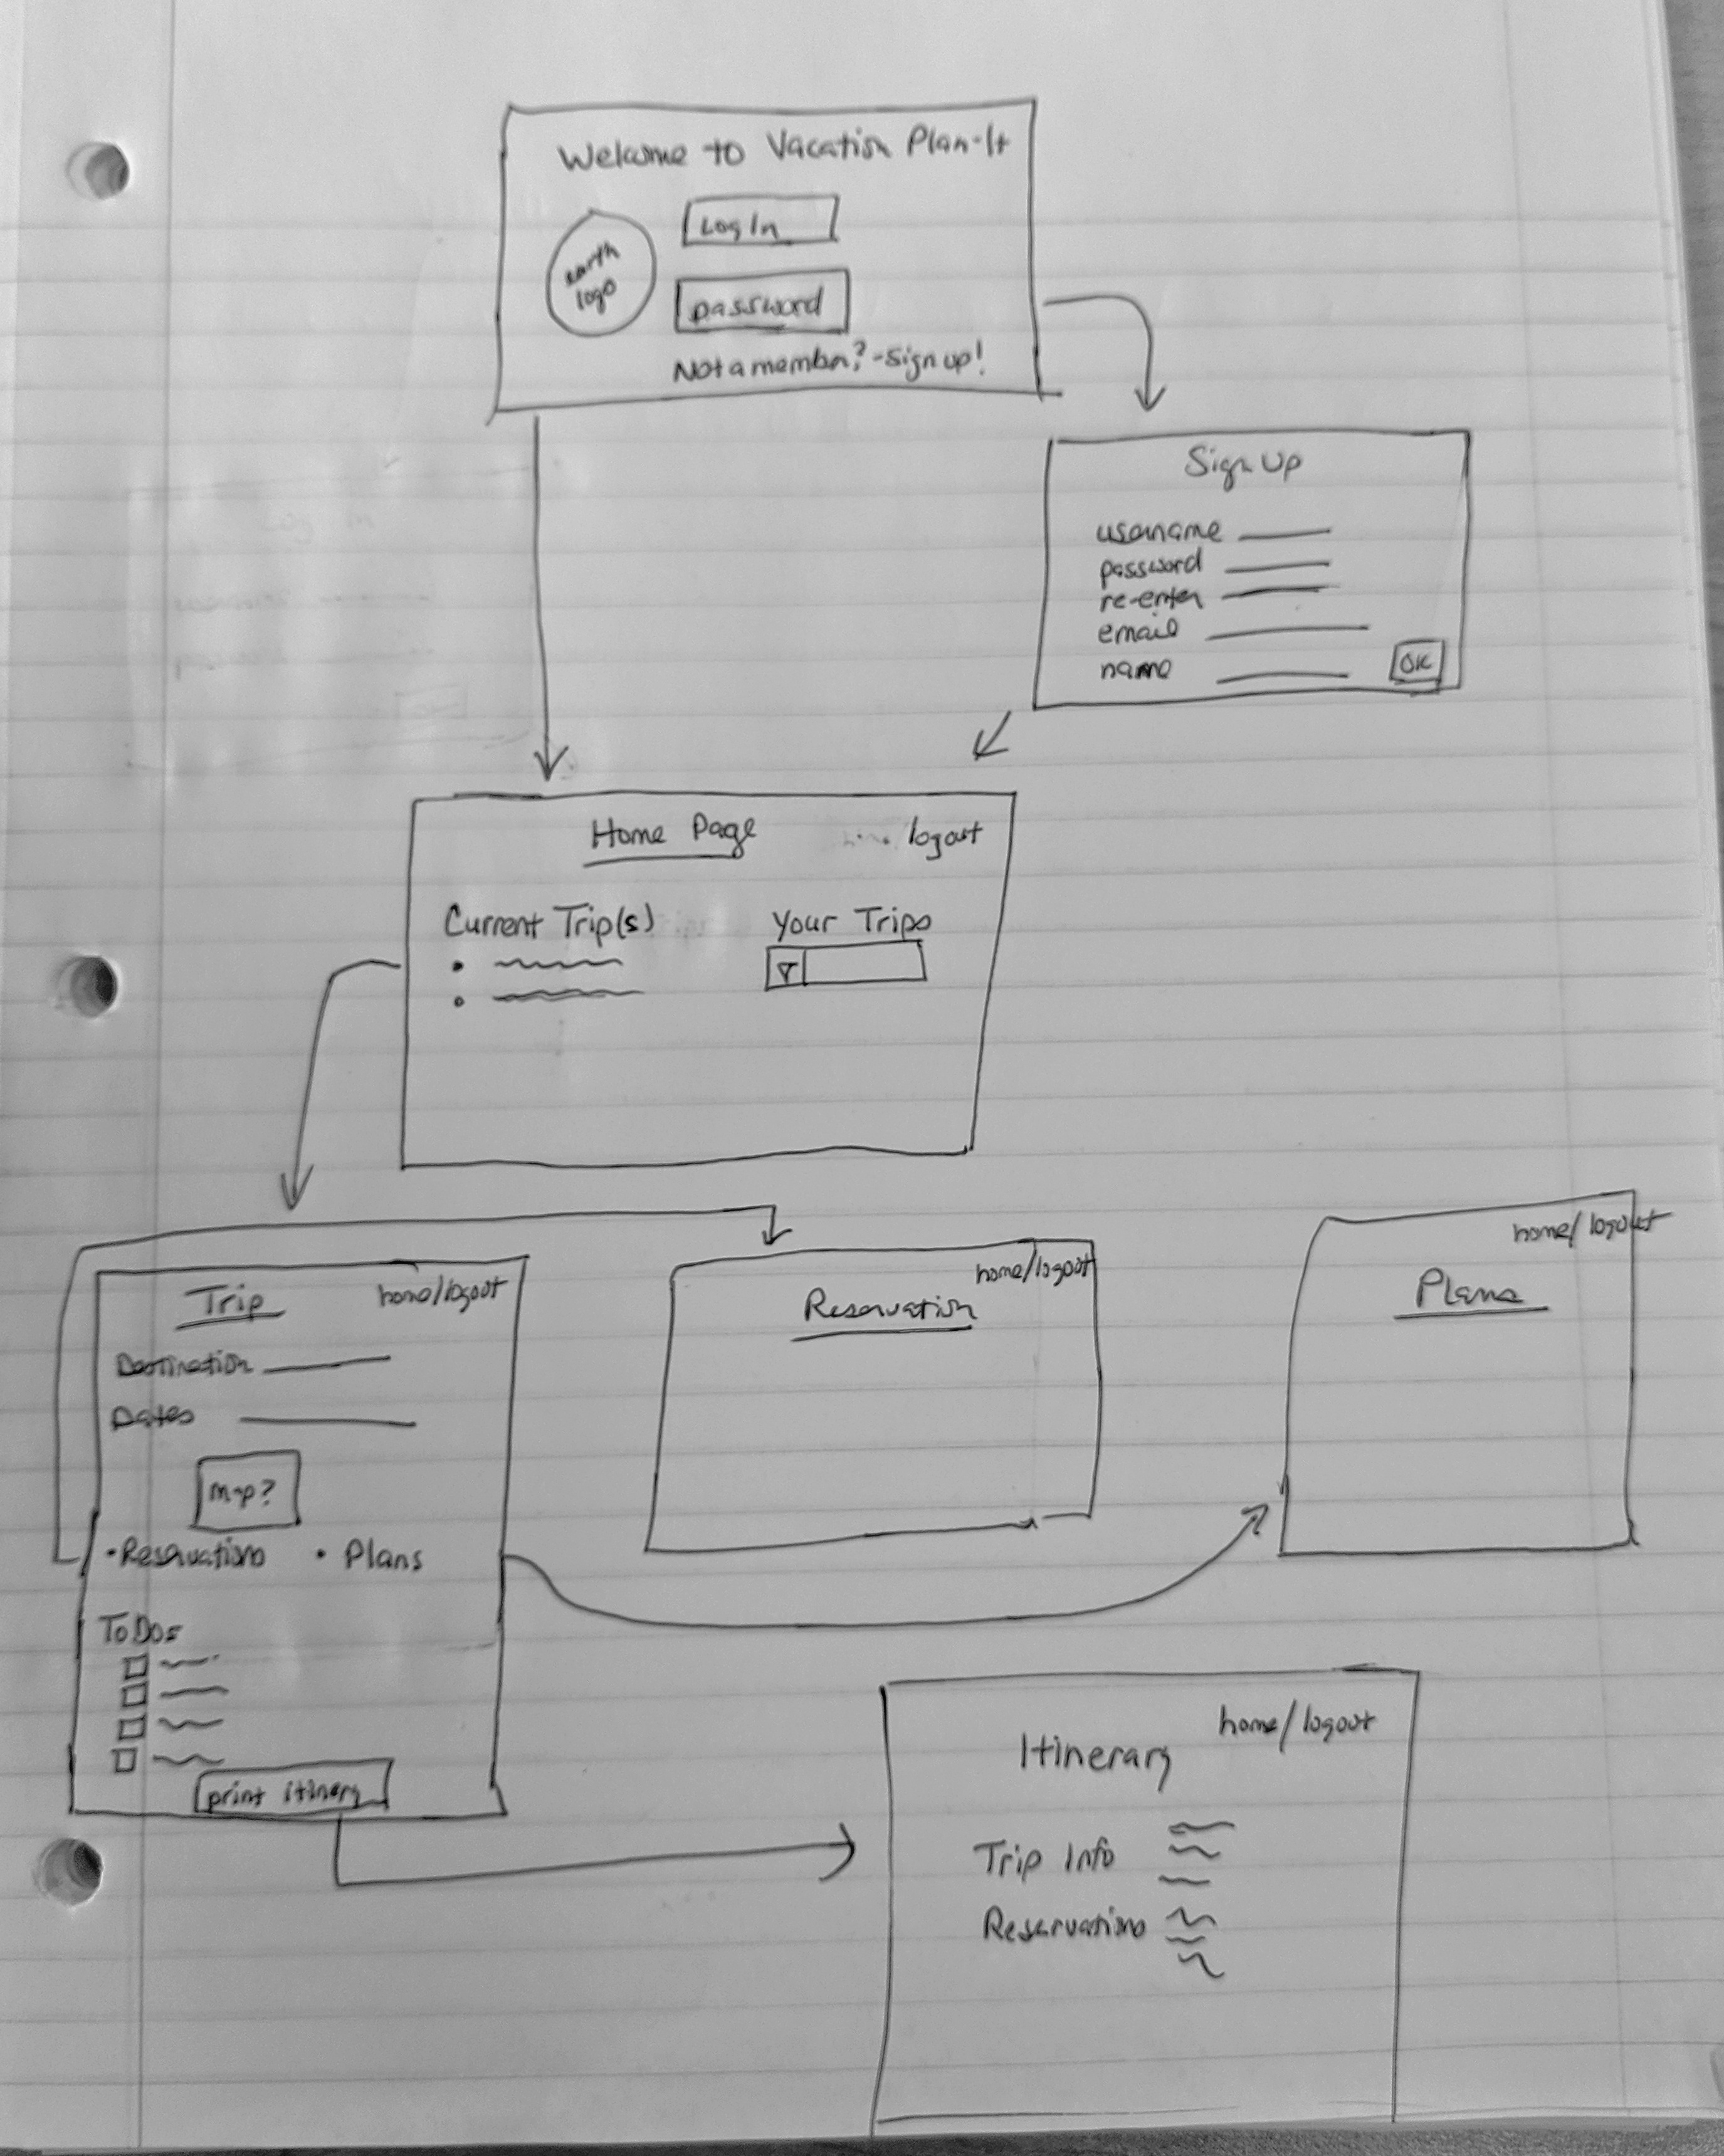 Welcome to Vacation Plan-It
Log In
earth
logo
password
Not a member? - Sign up!
Sign Up
username
password
re-enter
email
name
OK
Home Page
logout
Current Trip(s)
Your Trips
Trip
home/logout
Destination
Dates
Map?
• Reservations • Plans
To Dos
print itinery
home/logout
Reservation
home/logout
Plans
home/logout
Itinerary
Trip Info
Reservations